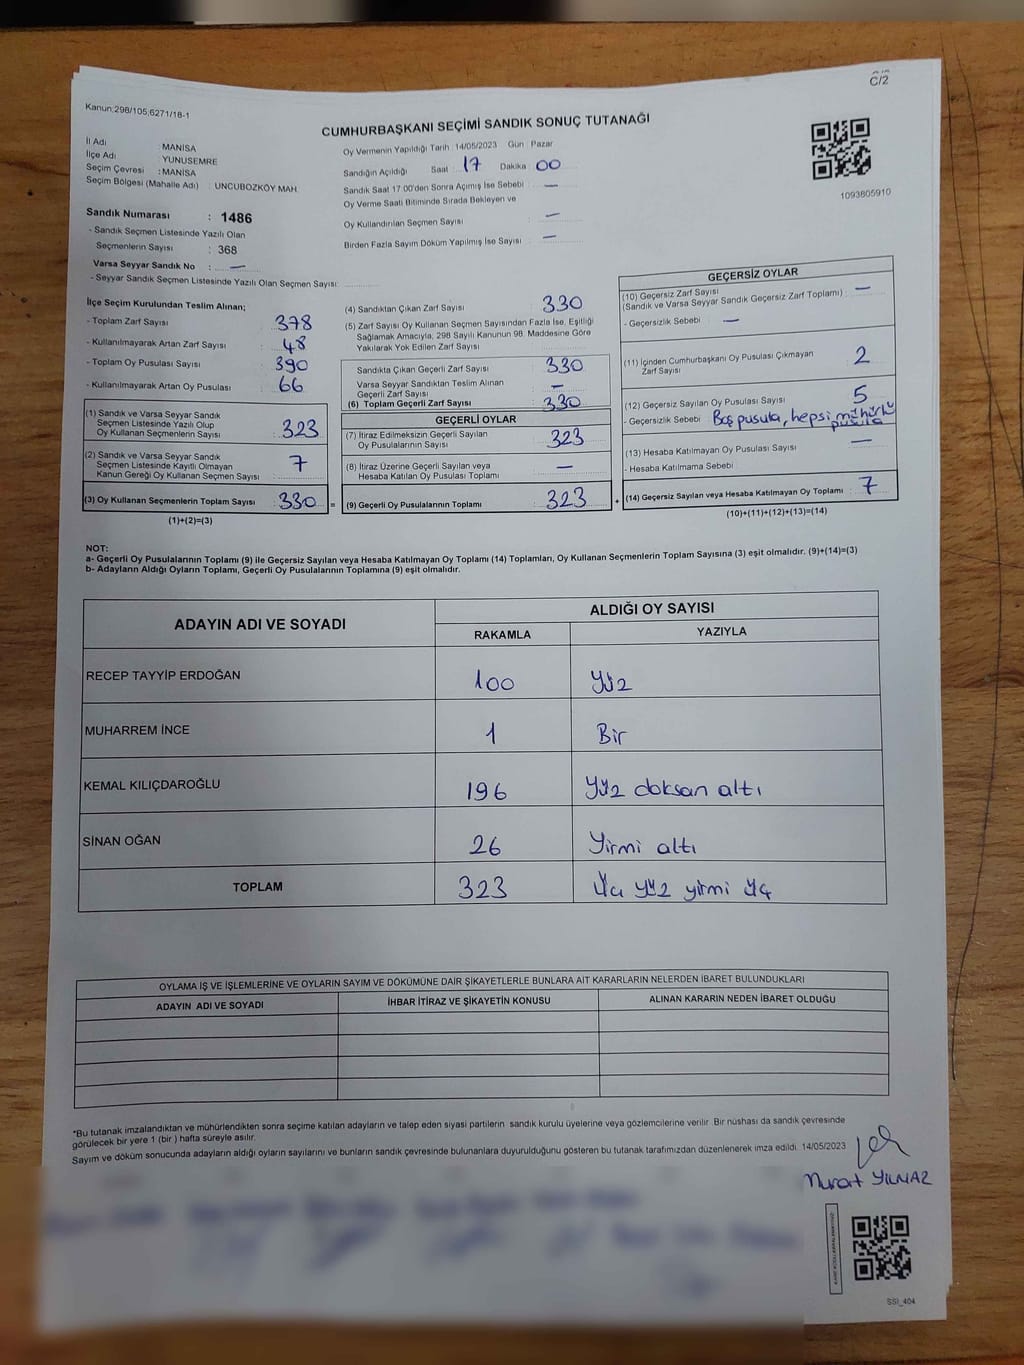 C/2
Kanun;298/105,6271/18-1
CUMHURBAŞKANI SEÇİMİ SANDIK SONUÇ TUTANAĞI
İl Adı : MANİSA
İlçe Adı : YUNUSEMRE
Seçim Çevresi : MANİSA
Seçim Bölgesi (Mahalle Adı) : UNCUBOZKÖY MAH.
Sandık Numarası : 1486
- Sandık Seçmen Listesinde Yazılı Olan
Seçmenlerin Sayısı : 368
Varsa Seyyar Sandık No : —
- Seyyar Sandık Seçmen Listesinde Yazılı Olan Seçmen Sayısı:
Oy Vermenin Yapıldığı Tarih 14/05/2023 Gün Pazar
Sandığın Açıldığı Saat 17 Dakika 00
Sandık Saat 17:00'den Sonra Açımış İse Sebebi : —
Oy Verme Saati Bitiminde Sırada Bekleyen ve
Oy Kullandırılan Seçmen Sayısı : —
Birden Fazla Sayım Döküm Yapılmış İse Sayısı : —
1093805910
İlçe Seçim Kurulundan Teslim Alınan;
- Toplam Zarf Sayısı : 378
- Kullanılmayarak Artan Zarf Sayısı : 48
- Toplam Oy Pusulası Sayısı : 390
- Kullanılmayarak Artan Oy Pusulası : 66
(1) Sandık ve Varsa Seyyar Sandık
Seçmen Listesinde Yazılı Olup
Oy Kullanan Seçmenlerin Sayısı : 323
(2) Sandık ve Varsa Seyyar Sandık
Seçmen Listesinde Kayıtlı Olmayan
Kanun Gereği Oy Kullanan Seçmen Sayısı : 7
(3) Oy Kullanan Seçmenlerin Toplam Sayısı : 330
(1)+(2)=(3)
(4) Sandıktan Çıkan Zarf Sayısı : 330
(5) Zarf Sayısı Oy Kullanan Seçmen Sayısından Fazla İse, Eşitliği
Sağlamak Amacıyla, 298 Sayılı Kanunun 98. Maddesine Göre
Yakılarak Yok Edilen Zarf Sayısı :
Sandıkta Çıkan Geçerli Zarf Sayısı : 330
Varsa Seyyar Sandıktan Teslim Alınan
Geçerli Zarf Sayısı : —
(6) Toplam Geçerli Zarf Sayısı : 330
GEÇERLİ OYLAR
(7) İtiraz Edilmeksizin Geçerli Sayılan
Oy Pusulalarının Sayısı : 323
(8) İtiraz Üzerine Geçerli Sayılan veya
Hesaba Katılan Oy Pusulası Toplamı : —
= (9) Geçerli Oy Pusulalarının Toplamı : 323
GEÇERSİZ OYLAR
(10) Geçersiz Zarf Sayısı
(Sandık ve Varsa Seyyar Sandık Geçersiz Zarf Toplamı) : —
- Geçersizlik Sebebi : —
(11) İçinden Cumhurbaşkanı Oy Pusulası Çıkmayan
Zarf Sayısı : 2
(12) Geçersiz Sayılan Oy Pusulası Sayısı : 5
- Geçersizlik Sebebi : Boş pusula, hepsi mühürlü
pusula
(13) Hesaba Katılmayan Oy Pusulası Sayısı : —
- Hesaba Katılmama Sebebi
+ (14) Geçersiz Sayılan veya Hesaba Katılmayan Oy Toplamı : 7
(10)+(11)+(12)+(13)=(14)
NOT:
a- Geçerli Oy Pusulalarının Toplamı (9) ile Geçersiz Sayılan veya Hesaba Katılmayan Oy Toplamı (14) Toplamları, Oy Kullanan Seçmenlerin Toplam Sayısına (3) eşit olmalıdır. (9)+(14)=(3)
b- Adayların Aldığı Oyların Toplamı, Geçerli Oy Pusulalarının Toplamına (9) eşit olmalıdır.
ADAYIN ADI VE SOYADI ALDIĞI OY SAYISI
RAKAMLA YAZIYLA
RECEP TAYYİP ERDOĞAN 100 Yüz
MUHARREM İNCE 1 Bir
KEMAL KILIÇDAROĞLU 196 Yüz doksan altı
SİNAN OĞAN 26 Yirmi altı
TOPLAM 323 Üç yüz yirmi üç
OYLAMA İŞ VE İŞLEMLERİNE VE OYLARIN SAYIM VE DÖKÜMÜNE DAİR ŞİKAYETLERLE BUNLARA AİT KARARLARIN NELERDEN İBARET BULUNDUKLARI
ADAYIN ADI VE SOYADI İHBAR İTİRAZ VE ŞİKAYETİN KONUSU ALINAN KARARIN NEDEN İBARET OLDUĞU
*Bu tutanak imzalandıktan ve mühürlendikten sonra seçime katılan adayların ve talep eden siyasi partilerin sandık kurulu üyelerine veya gözlemcilerine verilir. Bir nüshası da sandık çevresinde
görülecek bir yere 1 (bir ) hafta süreyle asılır.
Sayım ve döküm sonucunda adayların aldığı oyların sayılarını ve bunların sandık çevresinde bulunanlara duyurulduğunu gösteren bu tutanak tarafımızdan düzenlenerek imza edildi. 14/05/2023
Murat YILMAZ
SSİ_404